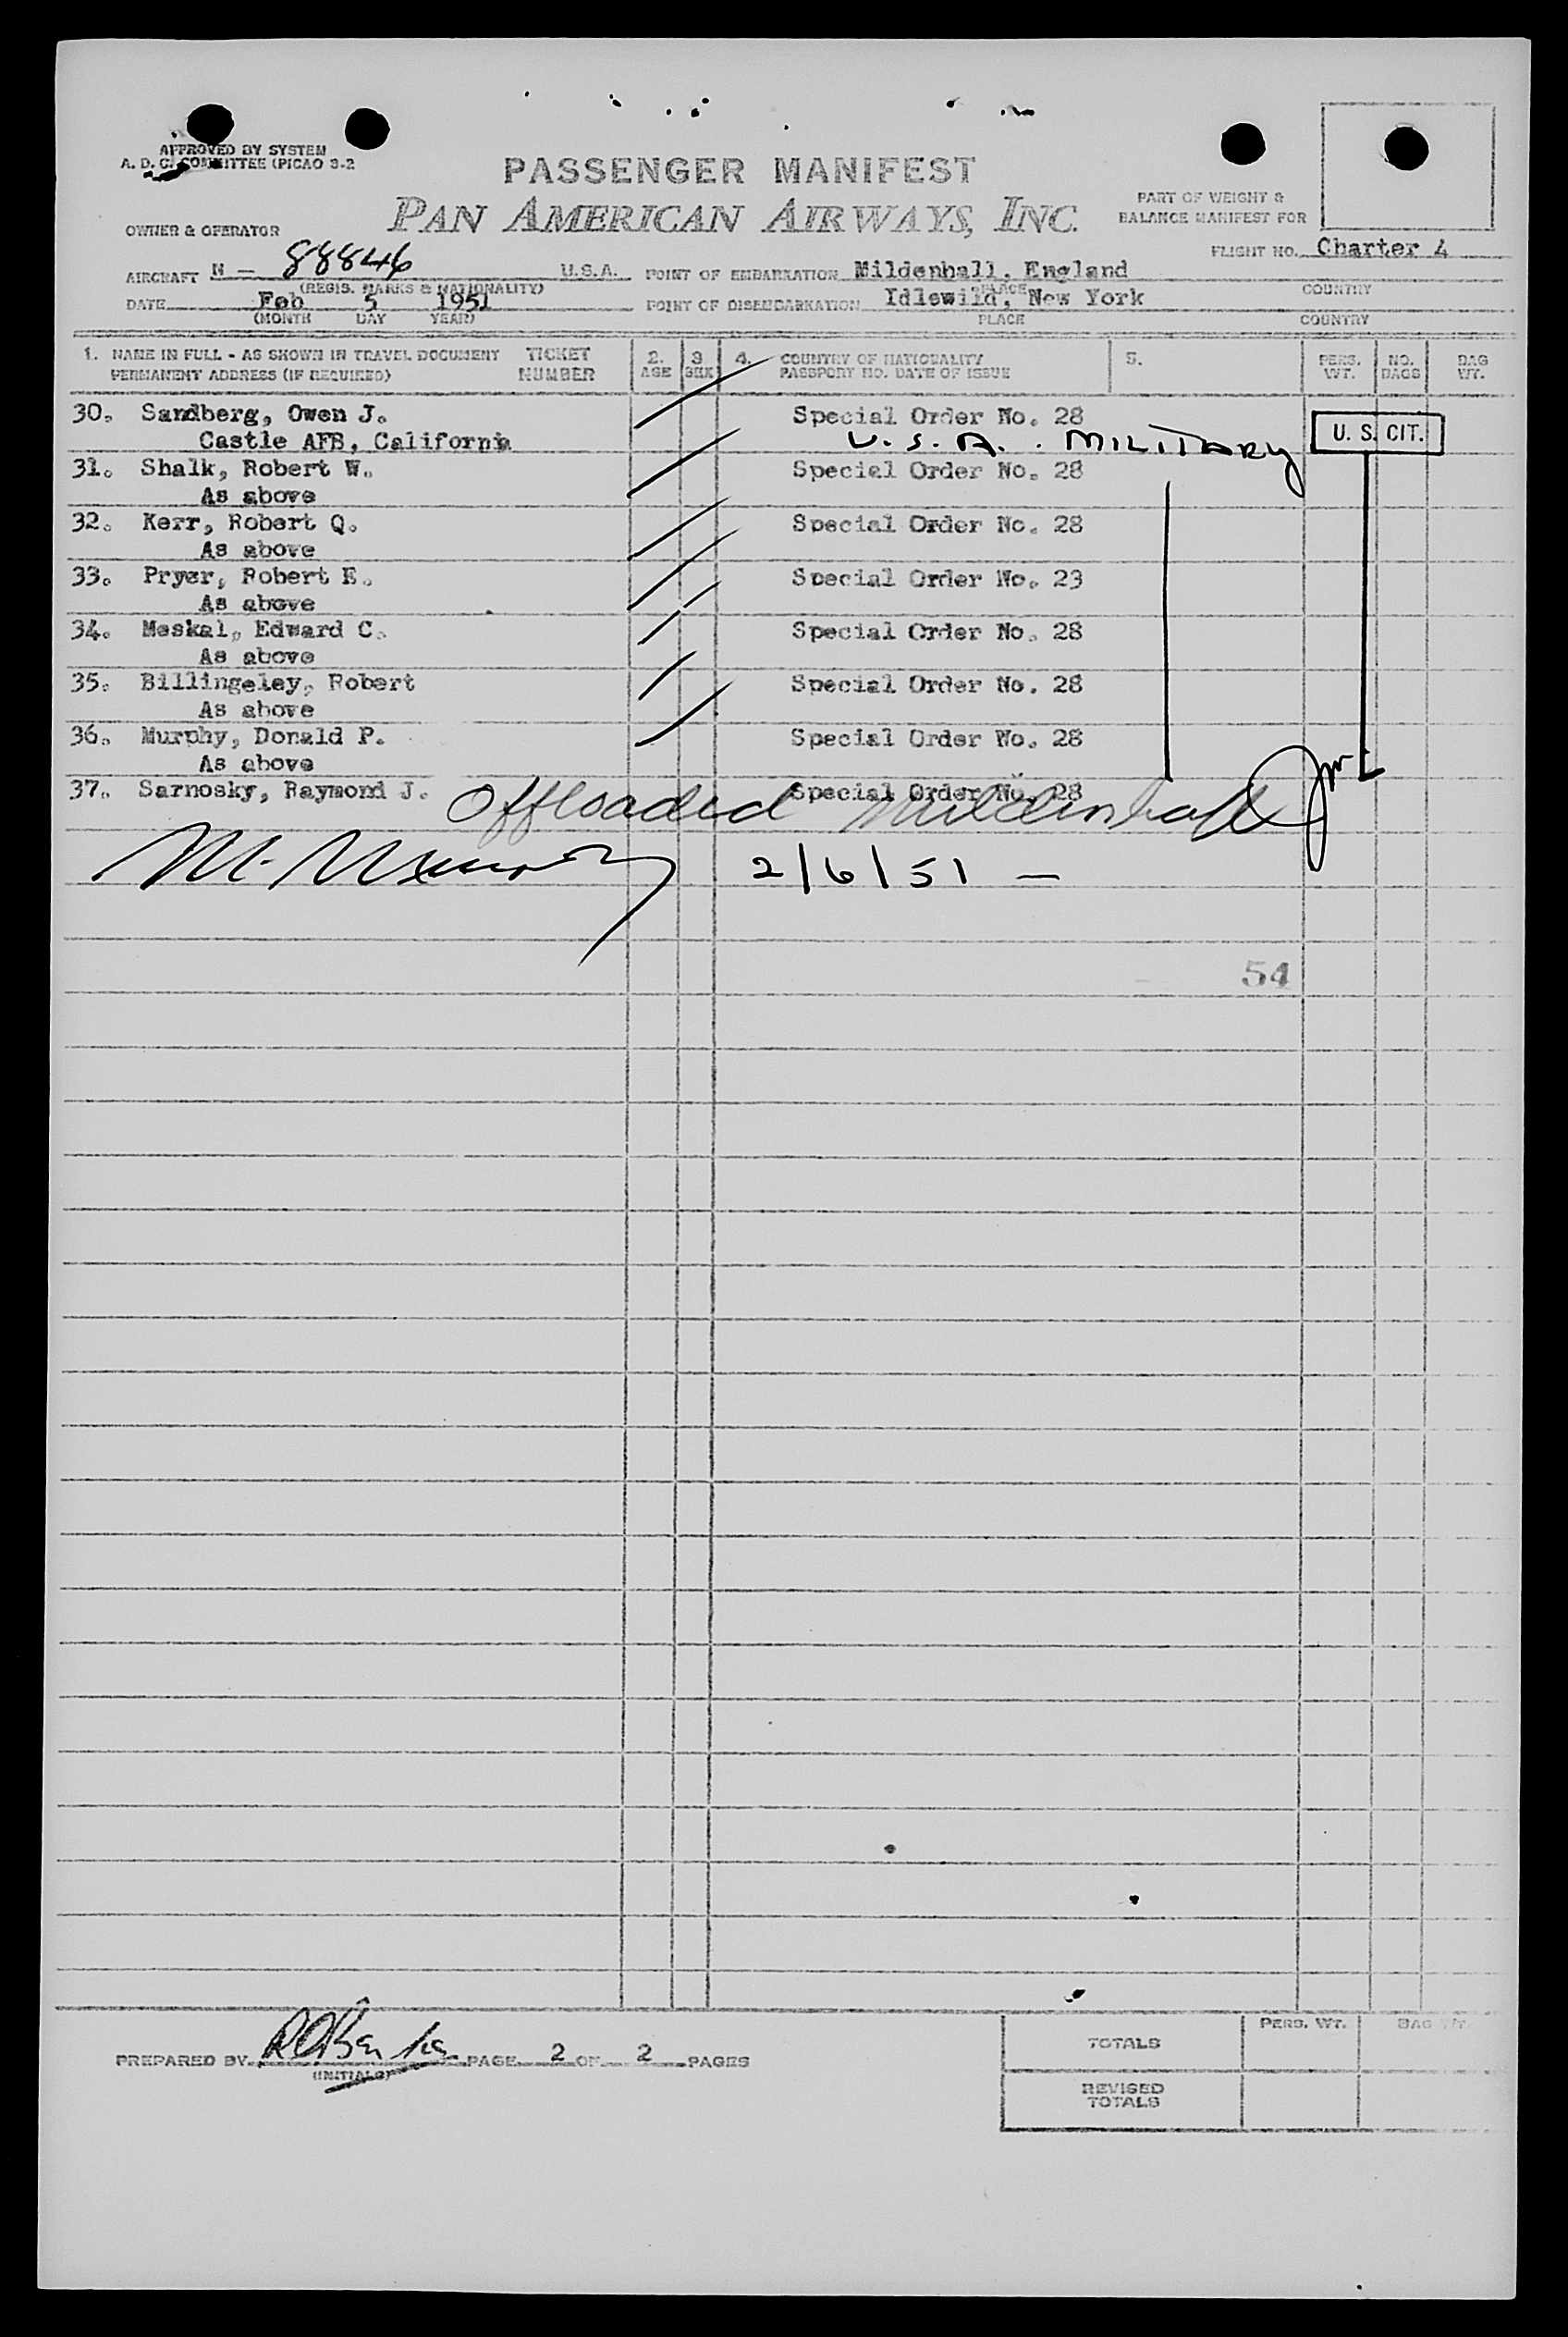 APPROVED BY SYSTEM
A. D. C. COMMITTEE (PICAO 3-2
PASSENGER MANIFEST
PAN AMERICAN AIRWAYS, INC.
PART OF WEIGHT &
BALANCE MANIFEST FOR
OWNER & OPERATOR
FLIGHT NO. Charter 4
AIRCRAFT N - 88846 U.S.A. POINT OF EMBARKATION Mildenhall, England
(REGIS. MARKS & NATIONALITY) PLACE COUNTRY
DATE Feb 5 1951 POINT OF DISEMBARKATION Idlewild, New York
(MONTH DAY YEAR) PLACE COUNTRY
1. NAME IN FULL - AS SHOWN IN TRAVEL DOCUMENT TICKET 2. 3 4. COUNTRY OF NATIONALITY 5. PERS. NO. BAG
PERMANENT ADDRESS (IF REQUIRED) NUMBER AGE SEX PASSPORT NO. DATE OF ISSUE WT. BAGS WT.
30. Sandberg, Owen J. Special Order No. 28
Castle AFB, California U.S.A. MILITARY U. S. CIT.
31. Shalk, Robert W. Special Order No. 28
As above
32. Kerr, Robert Q. Special Order No. 28
As above
33. Pryer, Robert E. Special Order No. 23
As above
34. Meskal, Edward C. Special Order No. 28
As above
35. Billingsley, Robert Special Order No. 28
As above
36. Murphy, Donald P. Special Order No. 28
As above
37. Sarnosky, Raymond J. Special Order No. 28
Offloaded Mildenhall
2/6/51 -
54
PREPARED BY PAGE 2 OF 2 PAGES
(INITIALS)
PERS. WT. BAG WT.
TOTALS
REVISED
TOTALS